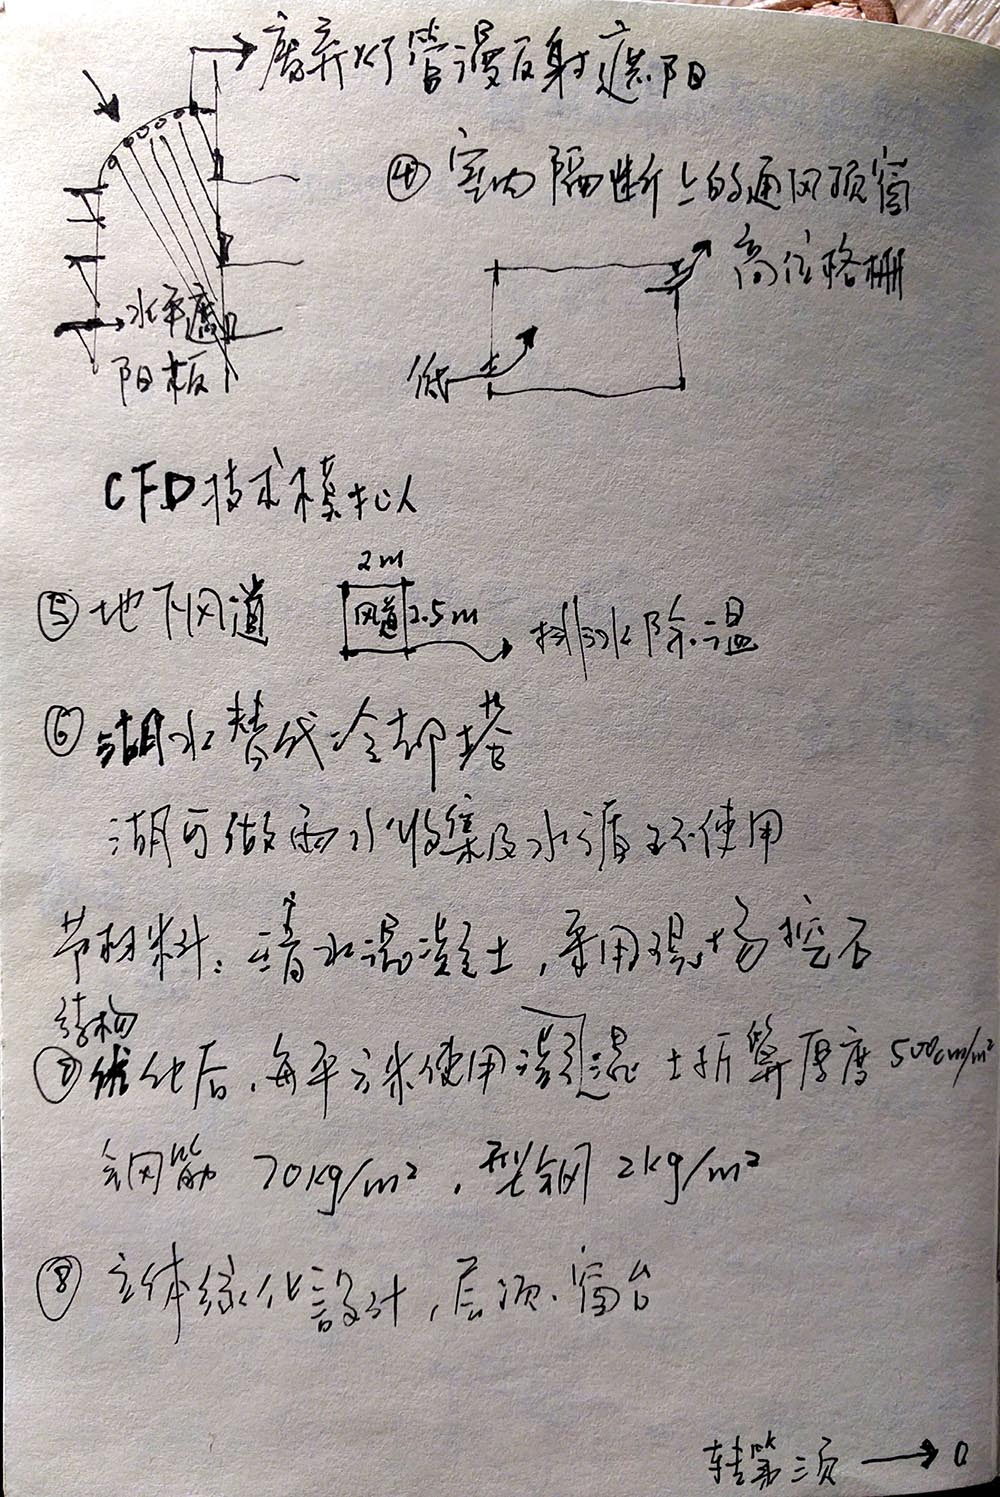 废弃灯管漫反射遮阳
水平遮
阳板
④ 室内隔断上的通风顶窗
高位格栅
低
CFD技术模拟
⑤ 地下风道
2m
风道
2.5m
排水除湿
⑥ 湖水替代冷却塔
湖可做雨水收集及水循环使用
节材料：清水混凝土，采用现场挖石
结构
⑦ 优化后，每平方米使用混凝土折算厚度 500cm/m²
钢筋 70kg/m²，型钢 2kg/m²
⑧ 立体绿化設计，层顶、窗台
转第三页